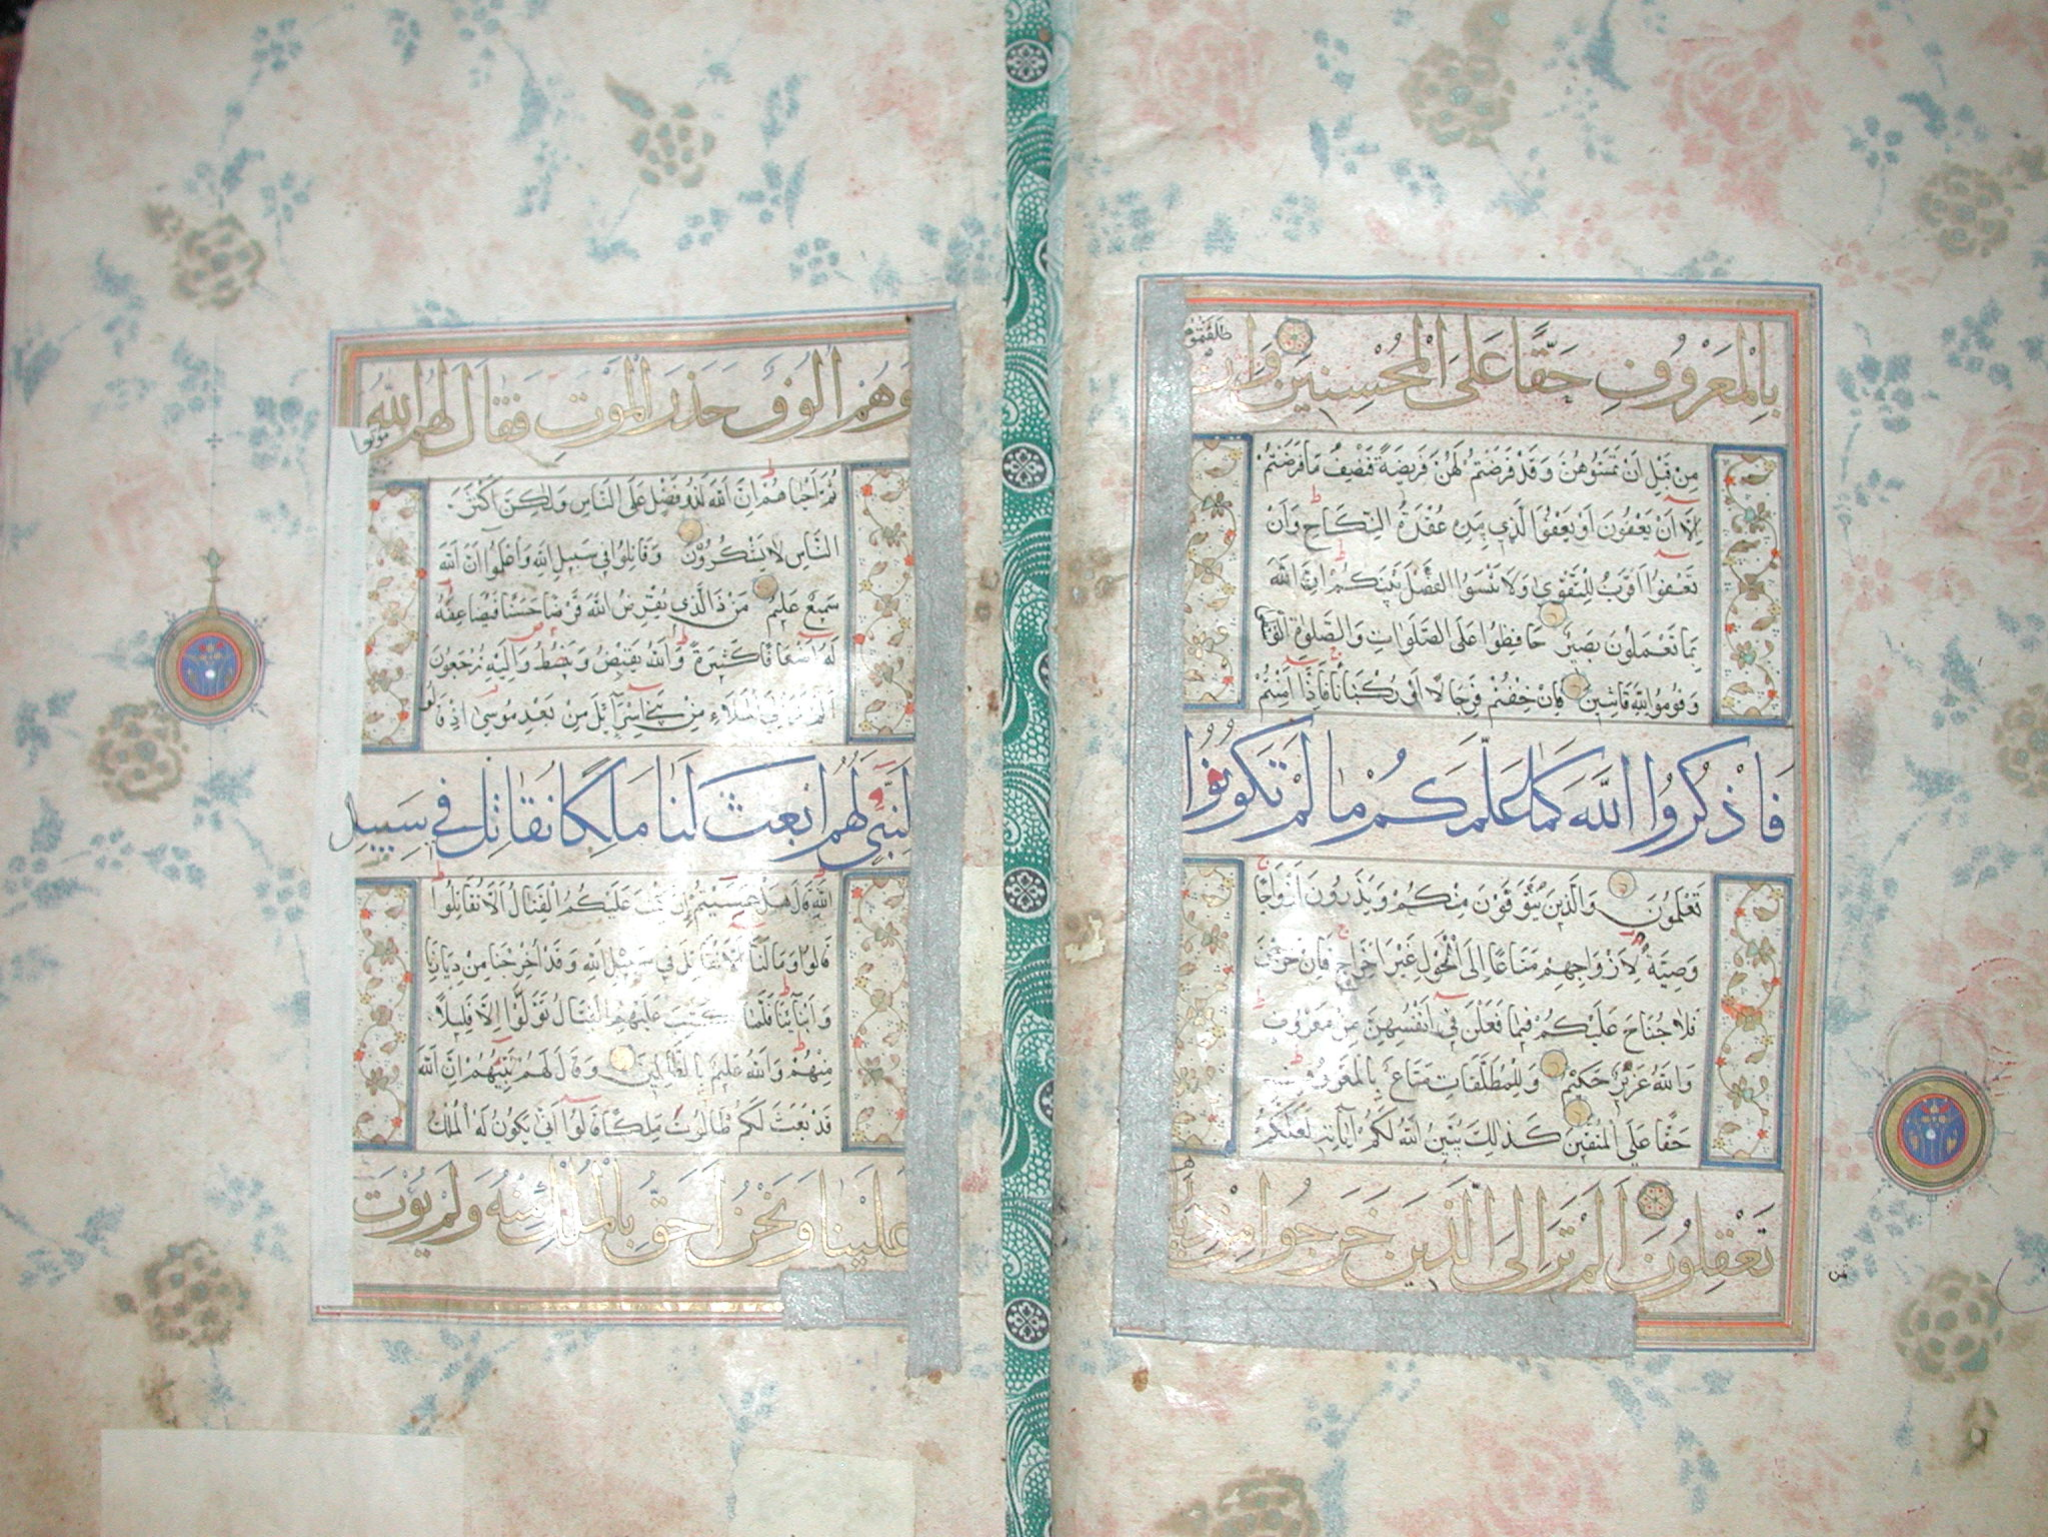 بِالْمَعْرُوفِ حَقًّا عَلَى الْمُحْسِنِينَ وَاِنْ
طَلَّقْتُمُوهُنَّ
مِنْ قَبْلِ اَنْ تَمَسُّوهُنَّ وَقَدْ فَرَضْتُمْ لَهُنَّ فَرِيضَةً فَنِصْفُ مَا فَرَضْتُمْ
اِلَّا اَنْ يَعْفُونَ اَوْ يَعْفُوَا الَّذِي بِيَدِهِ عُقْدَةُ النِّكَاحِ وَاَنْ
تَعْفُوا اَقْرَبُ لِلتَّقْوٰى وَلَا تَنْسَوُا الْفَضْلَ بَيْنَكُمْ اِنَّ اللّٰهَ
بِمَا تَعْمَلُونَ بَصِيرٌ حَافِظُوا عَلَى الصَّلَوَاتِ وَالصَّلٰوةِ
وَقُومُوا لِلّٰهِ قَانِتِينَ فَاِنْ خِفْتُمْ فَرِجَالًا اَوْ رُكْبَانًا فَاِذَا اَمِنْتُمْ
فَاذْكُرُوا اللّٰهَ كَمَا عَلَّمَكُمْ مَا لَمْ تَكُونُوا
تَعْلَمُونَ وَالَّذِينَ يُتَوَفَّوْنَ مِنْكُمْ وَيَذَرُونَ اَزْوَاجًا
وَصِيَّةً لِاَزْوَاجِهِمْ مَتَاعًا اِلَى الْحَوْلِ غَيْرَ اِخْرَاجٍ فَاِنْ خَرَجْنَ
فَلَا جُنَاحَ عَلَيْكُمْ فِيمَا فَعَلْنَ فِي اَنْفُسِهِنَّ مِنْ مَعْرُوفٍ
وَاللّٰهُ عَزِيزٌ حَكِيمٌ وَلِلْمُطَلَّقَاتِ مَتَاعٌ بِالْمَعْرُوفِ
حَقًّا عَلَى الْمُتَّقِينَ كَذٰلِكَ يُبَيِّنُ اللّٰهُ لَكُمْ اٰيَاتِهِ لَعَلَّكُمْ
تَعْقِلُونَ اَلَمْ تَرَ اِلَى الَّذِينَ خَرَجُوا مِنْ
ثمن
وَهُمْ اُلُوفٌ حَذَرَ الْمَوْتِ فَقَالَ لَهُمُ اللّٰهُ
مُوتُوا
ثُمَّ اَحْيَاهُمْ اِنَّ اللّٰهَ لَذُو فَضْلٍ عَلَى النَّاسِ وَلٰكِنَّ اَكْثَرَ
النَّاسِ لَا يَشْكُرُونَ وَقَاتِلُوا فِي سَبِيلِ اللّٰهِ وَاعْلَمُوا اَنَّ اللّٰهَ
سَمِيعٌ عَلِيمٌ مَنْ ذَا الَّذِي يُقْرِضُ اللّٰهَ قَرْضًا حَسَنًا فَيُضَاعِفَهُ
لَهُ اَضْعَافًا كَثِيرَةً وَاللّٰهُ يَقْبِضُ وَيَبْسُطُ وَاِلَيْهِ تُرْجَعُونَ
اَلَمْ تَرَ اِلَى الْمَلَاءِ مِنْ بَنِي اِسْرَآئِلَ مِنْ بَعْدِ مُوسٰى اِذْ قَالُوا
لِنَبِيٍّ لَهُمُ ابْعَثْ لَنَا مَلِكًا نُقَاتِلْ فِي سَبِيلِ
اللّٰهِ قَالَ هَلْ عَسَيْتُمْ اِنْ كُتِبَ عَلَيْكُمُ الْقِتَالُ اَلَّا تُقَاتِلُوا
قَالُوا وَمَا لَنَا اَلَّا نُقَاتِلَ فِي سَبِيلِ اللّٰهِ وَقَدْ اُخْرِجْنَا مِنْ دِيَارِنَا
وَاَبْنَآئِنَا فَلَمَّا كُتِبَ عَلَيْهِمُ الْقِتَالُ تَوَلَّوْا اِلَّا قَلِيلًا
مِنْهُمْ وَاللّٰهُ عَلِيمٌ بِالظَّالِمِينَ وَقَالَ لَهُمْ نَبِيُّهُمْ اِنَّ اللّٰهَ
قَدْ بَعَثَ لَكُمْ طَالُوتَ مَلِكًا قَالُوا اَنّٰى يَكُونُ لَهُ الْمُلْكُ
عَلَيْنَا وَنَحْنُ اَحَقُّ بِالْمُلْكِ مِنْهُ وَلَمْ يُؤْتَ